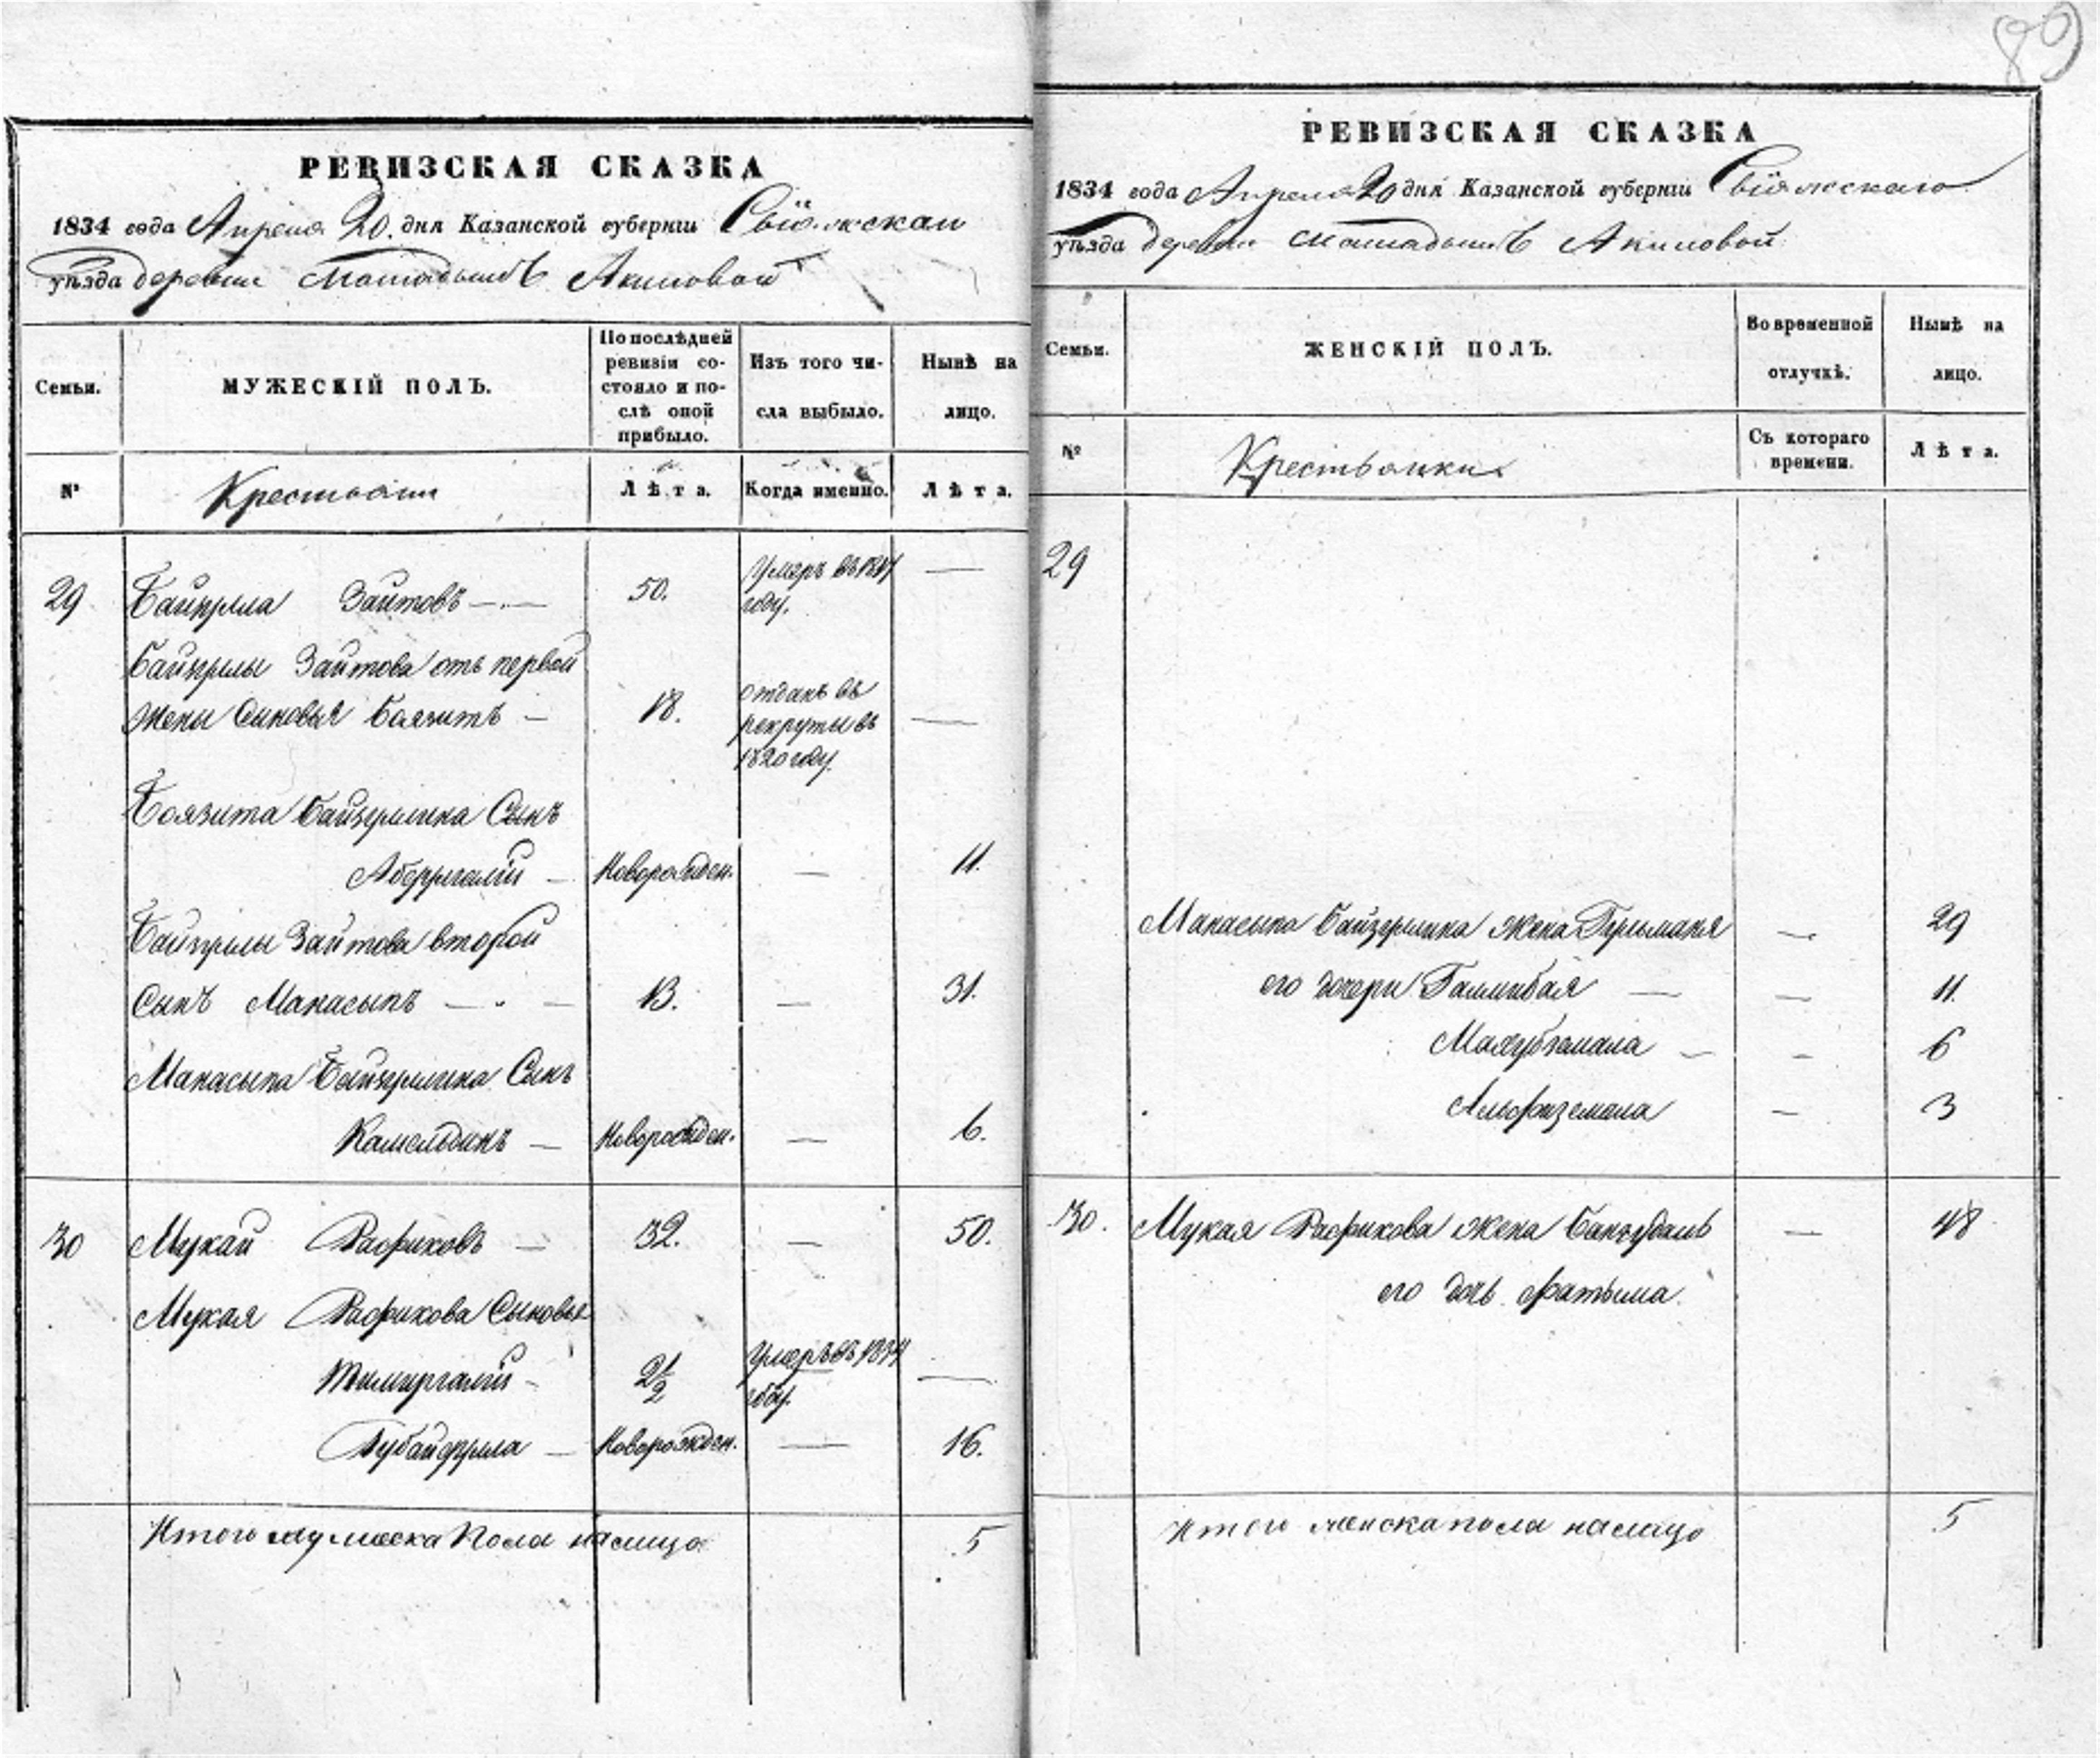 89
РЕВИЗСКАЯ СКАЗКА
1834 года Апреля 20. дня Казанской губерніи Свіяжскаго
уѣзда деревни Акиповой
Семьи.
МУЖЕСКІЙ ПОЛЪ.
По послѣдней
ревизіи со-
стояло и по-
слѣ оной
прибыло.
Изъ того чи-
сла выбыло.
Нынѣ на
лицо.
№
Крестьяни
Лѣта.
Когда именно.
Лѣта.
29 Зайтовъ 50. Умеръ въ
году.
Зайтова отъ первой
Жены Сыновья Баязитъ 18. отданъ въ
рекруты въ
1820 году.
Боязита Сынъ
Новорожден. 11.
Зайтова второй
Сынъ Манасыпъ 13. 31.
Манасыпа Сынъ
Камелдинъ Новорожден. 6.
30 Мукай Рафиковъ 32. 50.
Мукая Рафикова Сыновья
Тимиргалій 2½ Умеръ въ
году.
Новорожден. 16.
Итого мужеска Пола налицо 5
РЕВИЗСКАЯ СКАЗКА
1834 года Апреля 20 дня Казанской губерніи Свіяжскаго
уѣзда деревни Акиповой
Семьи.
ЖЕНСКІЙ ПОЛЪ.
Во временной
отлучкѣ.
Нынѣ на
лицо.
№
Крестьянки
Съ котораго
времени.
Лѣта.
29
Манасыпа Жена 29
его дочери 11.
6
3
30. Мукая Рафикова Жена 48
его дочь Фатыма.
Итого женска пола налицо 5